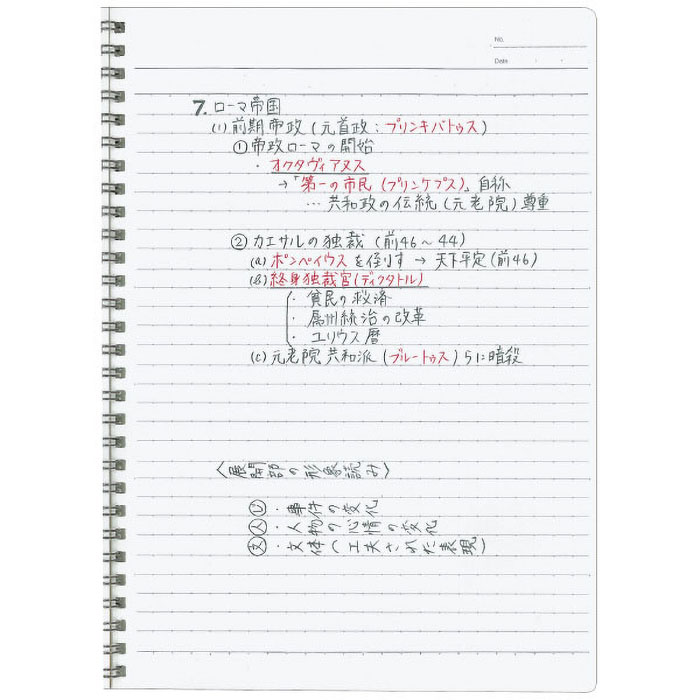 No.
Date
7. ローマ帝国
(1) 前期帝政 (元首政：プリンキパトゥス)
① 帝政ローマの開始
・オクタヴィアヌス
→「第一の市民 (プリンケプス)」自称
… 共和政の伝統 (元老院) 尊重
② カエサルの独裁 (前46～44)
(a) ポンペイウスを倒す → 天下平定 (前46)
(b) 終身独裁官 (ディクタトル)
・貧民の救済
・属州統治の改革
・ユリウス暦
(c) 元老院共和派 (ブルートゥス) らに暗殺
〈展開部の形象読み〉
・事件の変化
人・人物の心情の変化
文・文体 (工夫された表現)